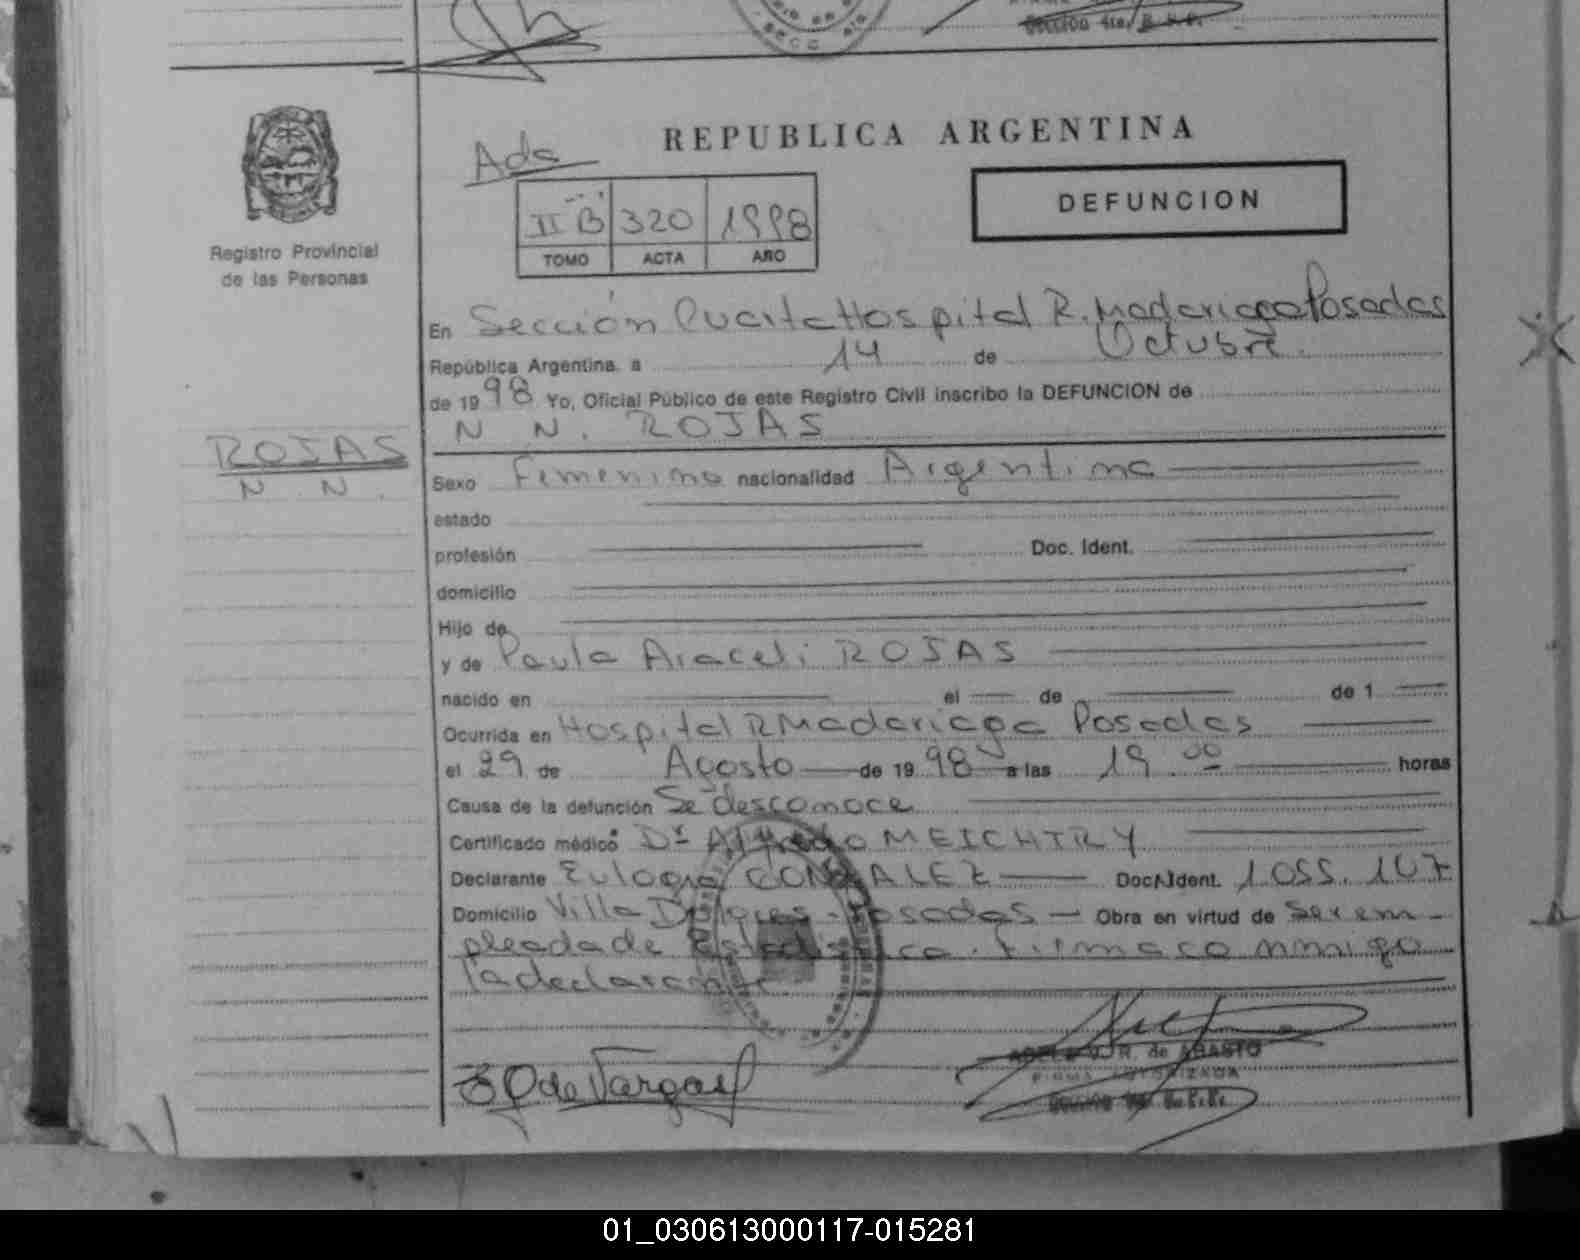 Sección 4ta. R.P.P.
Registro Provincial
de las Personas
REPUBLICA ARGENTINA
DEFUNCION
II B 320 1998
TOMO ACTA AÑO
En Sección Cuarta Hospital R. Madariaga Posadas
República Argentina, a 14 de Octubre.
de 19 98 Yo, Oficial Público de este Registro Civil inscribo la DEFUNCION de
N N. ROJAS
ROJAS
N N.
Sexo Femenino nacionalidad Argentina
estado
profesión Doc. Ident.
domicilio
Hijo de
y de Paula Araceli ROJAS
nacido en el de de 1
Ocurrida en Hospital R Madariaga Posadas
el 29 de Agosto de 19 98 a las 19 00 horas
Causa de la defunción Se desconoce
Certificado médico Dr Alfredo MEICHTRY
Declarante Eulogia GONZALEZ Doc. Ident. 1.055.107
Domicilio Villa Posadas Obra en virtud de Ser em-
pleada de Estadistica. Firma conmigo
la declarante
E G de Vargas
ADELA V. R. de ABASTO
FIRMA AUTORIZADA
01_030613000117-015281